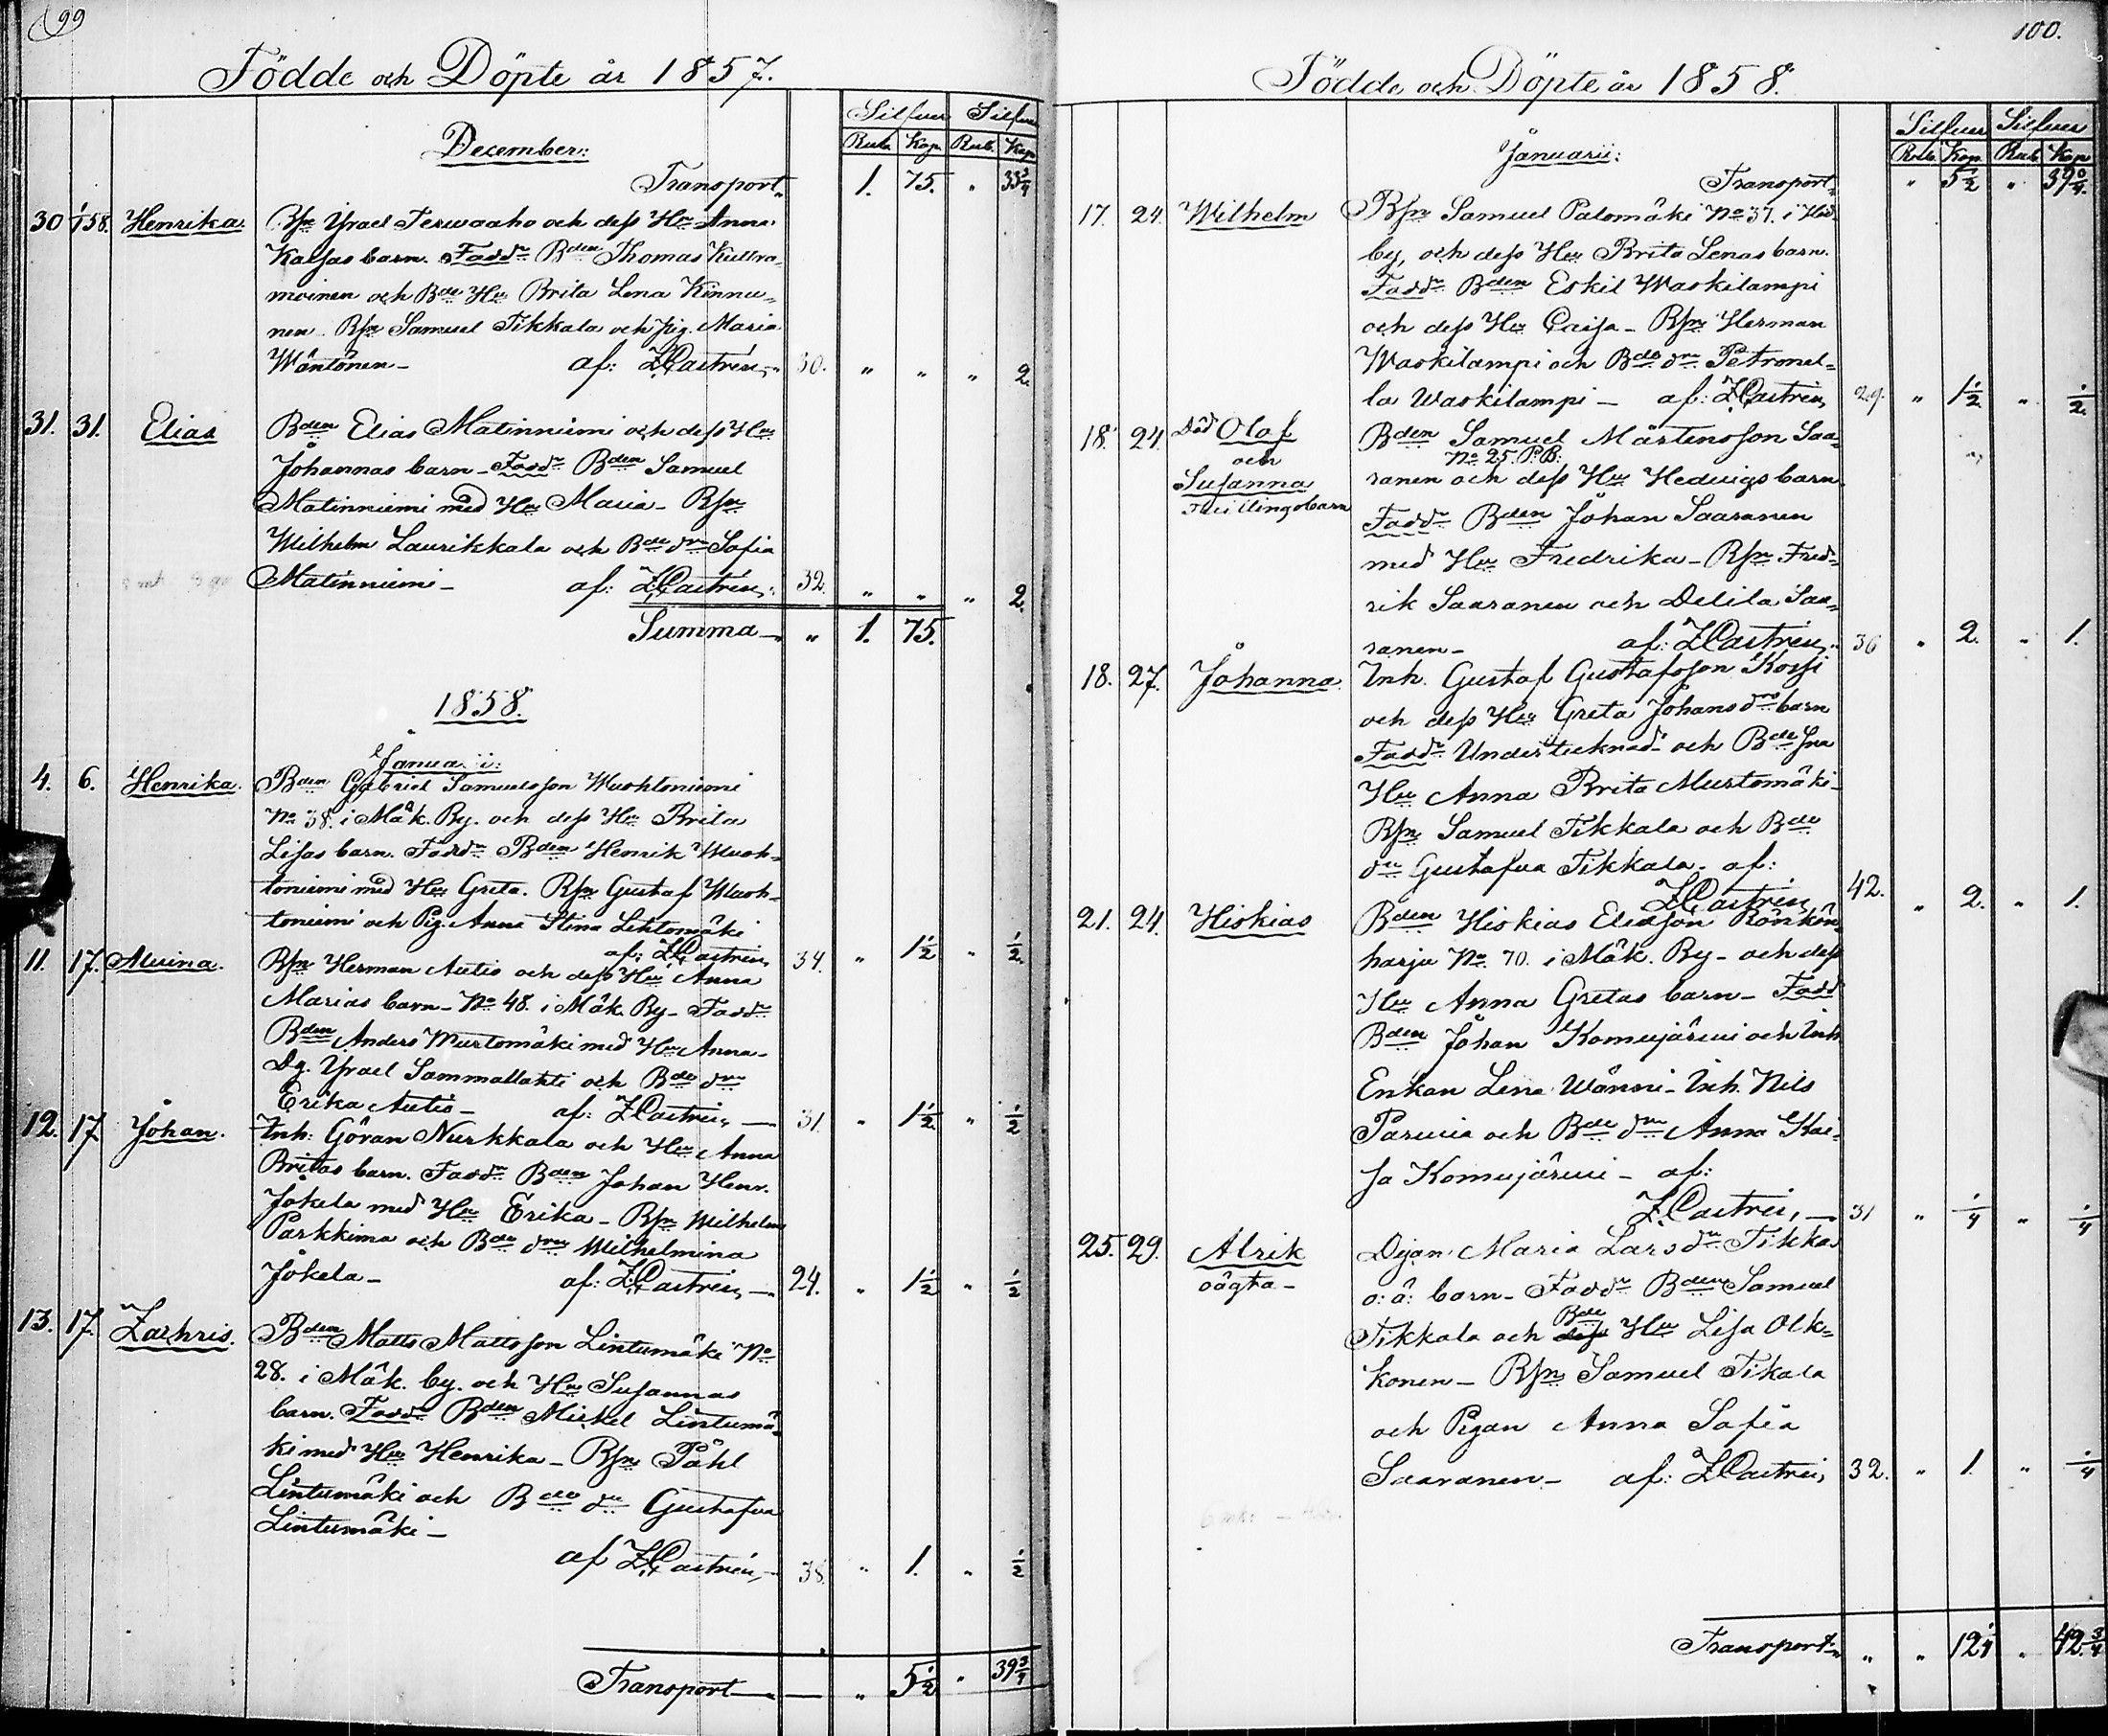 99
Födde och Döpte år 1857.
Silfver Silfver
Rub. Kop. Rub. Kop
December:
Transport 1. 75. " 33 3/4
30 1/1 58. Henrika. Bsn Ysrael Terwaaho och dess Hu Anna
Kaisas barn. Faddr Bden Thomas Kullva-
moinen och Bde Hu Brita Lena Kinnu-
nen. Bsn Samuel Tikkala och pig. Maria
Wäntönen - af: ZCastrén, 30. " " " 2.
31. 31. Elias Bden Elias Matinniemi och dess Hu
Johannas barn - Faddr Bden Samuel
Matinniemi med Hu Maria - Bsn
Wilhelm Laurikkala och Bde dr Sofia
Matinniemi - af: ZCastrén, 32. " " " 2.
Summa " 1. 75.
1858.
Januarii:
4. 6. Henrika. Bden Gabriel Samuelsson Wuohtoniemi
No 38. i Mäk. By. och dess Hu Brita
Lisas barn. Faddr Bden Henrik Wuoh-
toniemi med Hu Greta. Bsn Gustaf Wuoh-
toniemi och Pig. Anna Stina Lehtomäki
af: ZCastrén, 34. " 1 1/2 " 1/2.
11. 17. Alwina. Bsn Herman Autio och dess Hu Anna
Marias barn - No 48. i Mäk. By - Faddr
Bden Anders Murtomäki med Hu Anna -
Dg. Ysrael Sammallahti och Bde dr
Erika Autio - af: ZCastrén, 31. " 1 1/2 " 1/2
12. 17. Johan. Inh: Göran Nurkkala och Hu Anna
Britas barn. Faddr Bden Johan Henr.
Jokela med Hu Erika - Bsn Wilhelm
Parkkima och Bde dr Wilhelmina
Jokela - af: ZCastrén, 24. " 1 1/2 " 1/2
13. 17. Zachris. Bden Matts Mattsson Lintumäki No
28. i Mäk. by. och Hu Susannas
barn. Faddr Bden Mickel Lintumä-
ki med Hu Henrika - Bsn Påhl
Lintumäki och Bde dr Gustafva
Lintumäki -
af ZCastrén, 38. " 1. " 1/2
Transport " 5 1/2 " 39 3/4
100.
Födde och Döpte år 1858.
Silfver Silfver
Rub. Kop. Rub. Kop
Januarii:
Transport " 5 1/2 " 39 3/4.
17. 24. Wilhelm Bsn Samuel Palomäki No 37. i
by, och dess Hu Brita Lenas barn.
Faddr Bden Eskil Waskilampi
och dess Hu Caisa - Bsn Herman
Waskilampi och Bde dr Petronel-
la Waskilampi - af: ZCastrén, 29. " 1 1/2. " 1/2.
18. 24. Död Olof Bden Samuel Mårtensson Saa-
och No 25. P.B.
Susanna ranen och dess Hu Hedvigs barn
Tvillingsbarn Faddr Bden Johan Saaranen
med Hu Fredrika - Bsn Fred-
rik Saaranen och Delila Saa-
ranen - af: ZCastrén, 36 " 2. " 1.
18. 27. Johanna. Inh. Gustaf Gustafsson Kossi
och dess Hu Greta Johansdrs barn
Faddr Undertecknad och Bde
Hu Anna Brita Murtomäki -
Bsn Samuel Tikkala och Bde
dr Gustafva Tikkala. af:
ZCastrén, 42. " 2. " 1.
21. 24. Hiskias Bden Hiskias Eliasson Rönkön-
harju No. 70. i Mäk. By - och dess
Hu Anna Gretas barn - Fadd
Bden Johan Komujärvi och Inh
Enkan Lena Wänni - Inh. Nils
Parvia och Bde dr Anna Kai-
sa Komujärvi - af:
ZCastrén, 31 " 1/4 " 1/4
25. 29. Alrik Dejan Maria Larsdr Tikkas
oägta - o: ä: barn - Faddr Bden Samuel
Tikkala och Bde Hu Lisa Olk-
konen - Bsn Samuel Tikala
och Pigan Anna Sofia
Saaranen - af: ZCastrén, 32. " 1. " 1/4
Transport " " 12 1/4 " 42 3/4